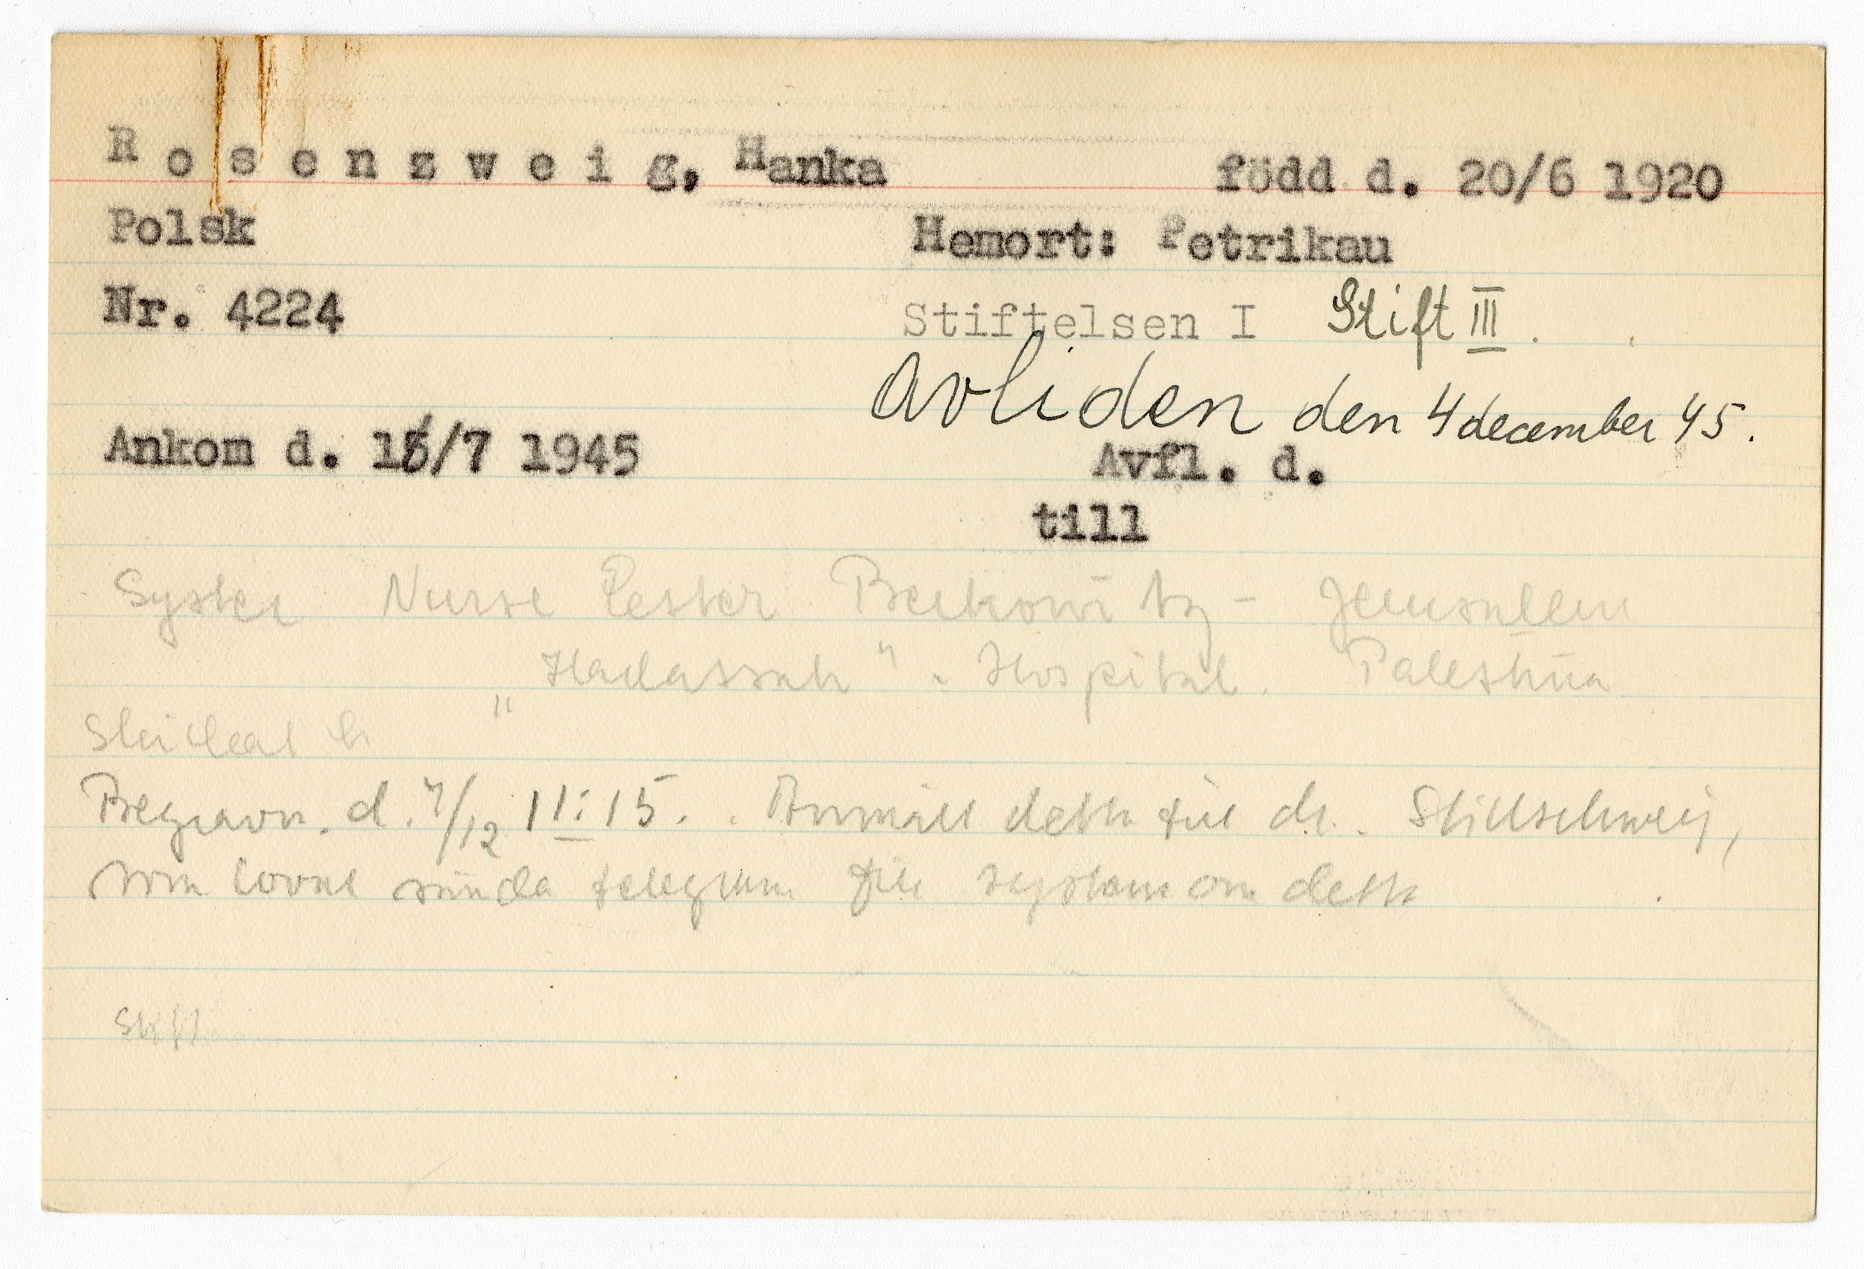 Rosenzweig, Hanka född d. 20/6 1920
Polsk Hemort: Petrikau
Nr. 4224 Stiftelsen I Stift III.
Avliden den 4 december 45.
Ankom d. /7 1945 Avfl. d.
till
Syster Nurse Berkowitz - Jerusalem
"Hadassah" - Hospital. Palestina
Begravn. d. 11:15. Anmält detta till dr. Stillschweij,
som lovat sända telegram till systern om detta.
Stift